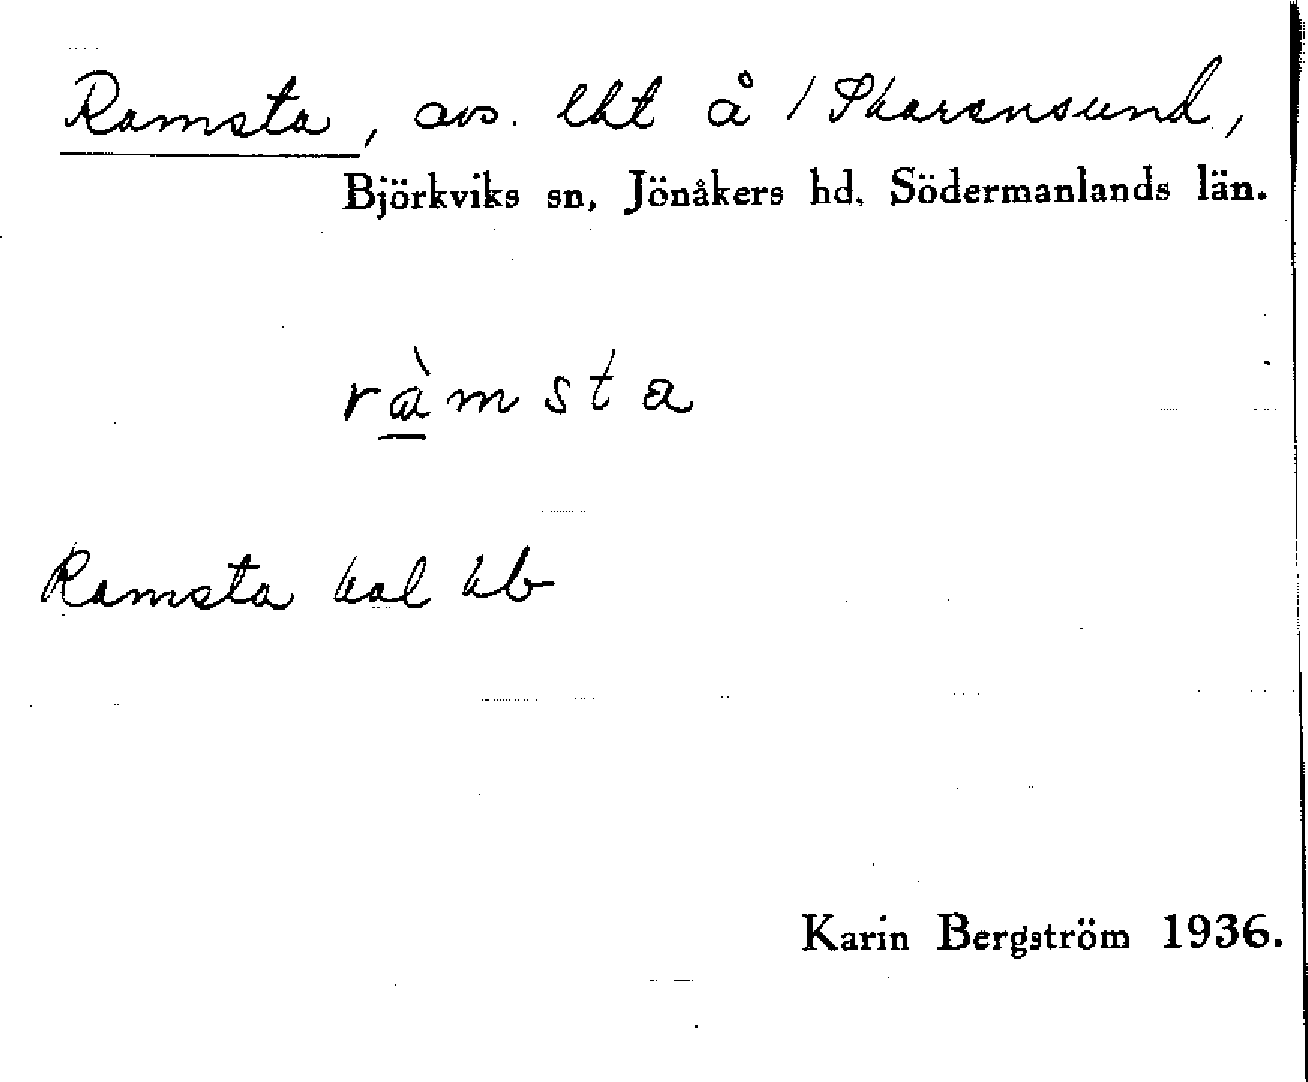 Ramsta, avs. lht å 1 Skarensund,
Björkviks sn, Jönåkers hd, Södermanlands län.
ràmsta
Ramsta kal kb
Karin Bergström 1936.